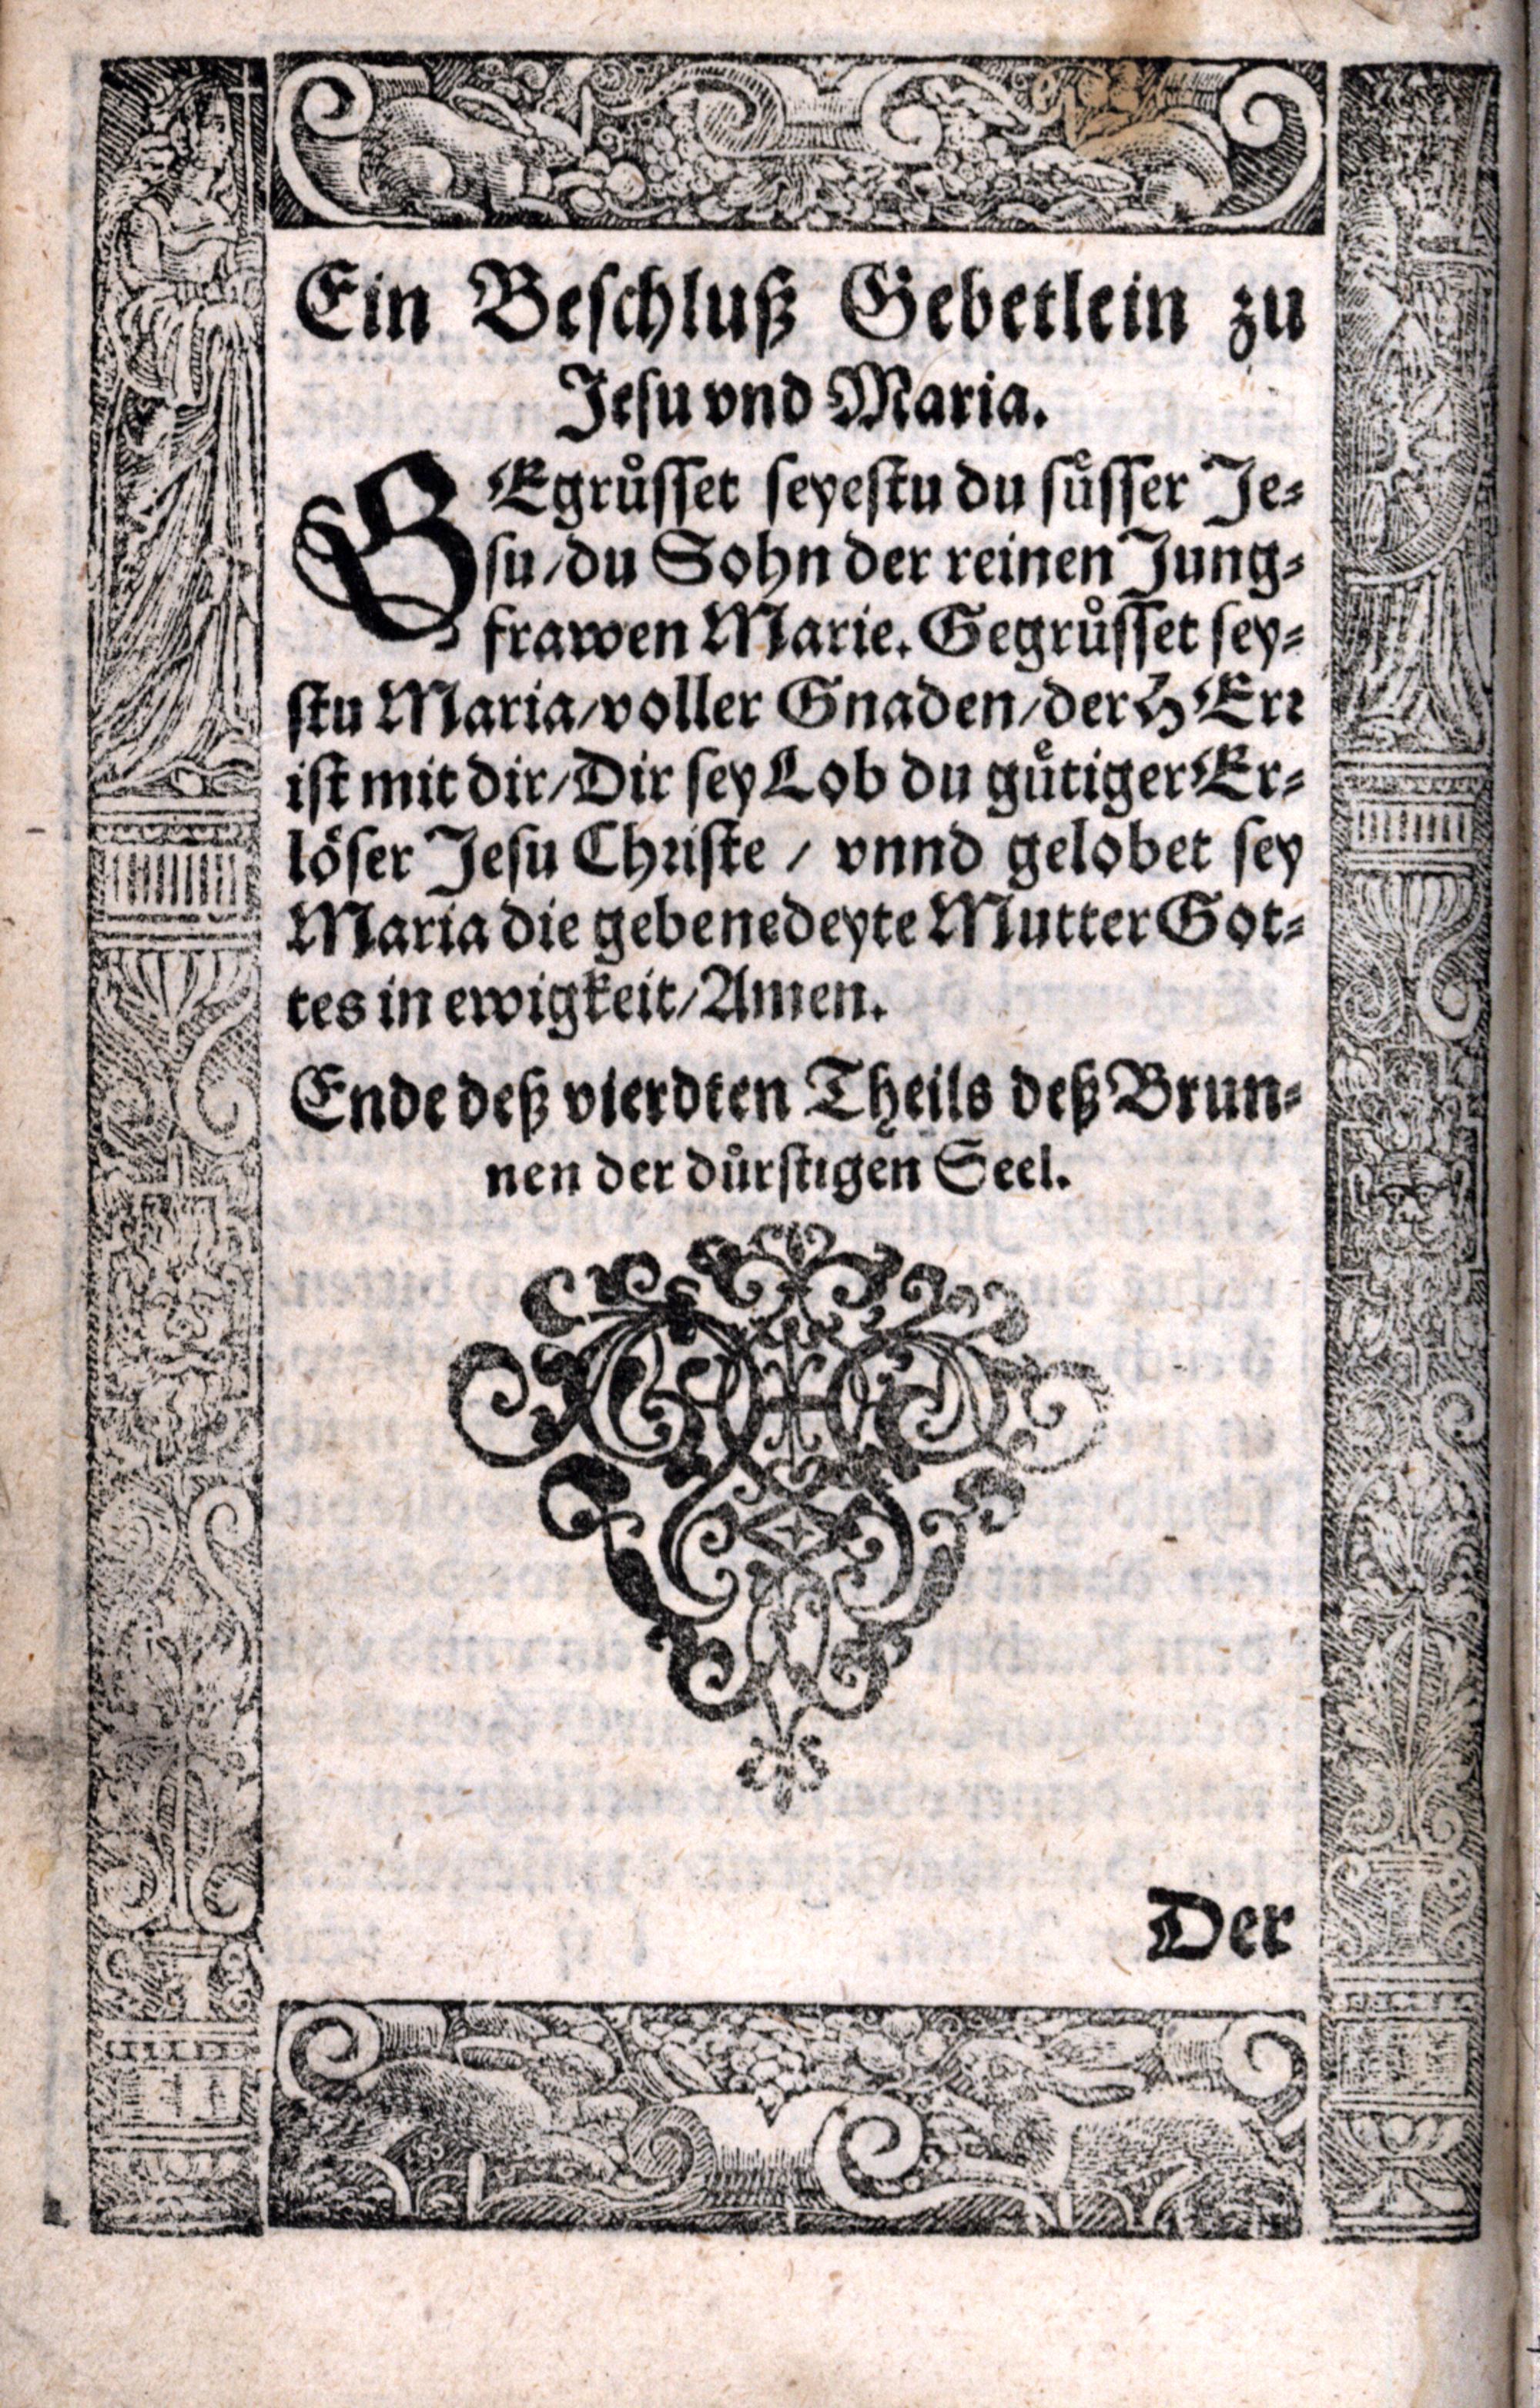 Ein Beschluß Gebetlein zu
Jesu vnd Maria.
GEgrůsset seyestu du sůsser Je⸗
su/du Sohn der reinen Jung⸗
frawen Marie. Gegrůsset sey⸗
stu Maria/voller Gnaden/der HErr
ist mit dir/Dir sey Lob du gůtiger Er⸗
löser Jesu Christe / vnnd gelobet sey
Maria die gebenedeyte Mutter Got⸗
tes in ewigkeit/Amen.
Ende deß vierdten Theils deß Brun⸗
nen der důrstigen Seel.
Der